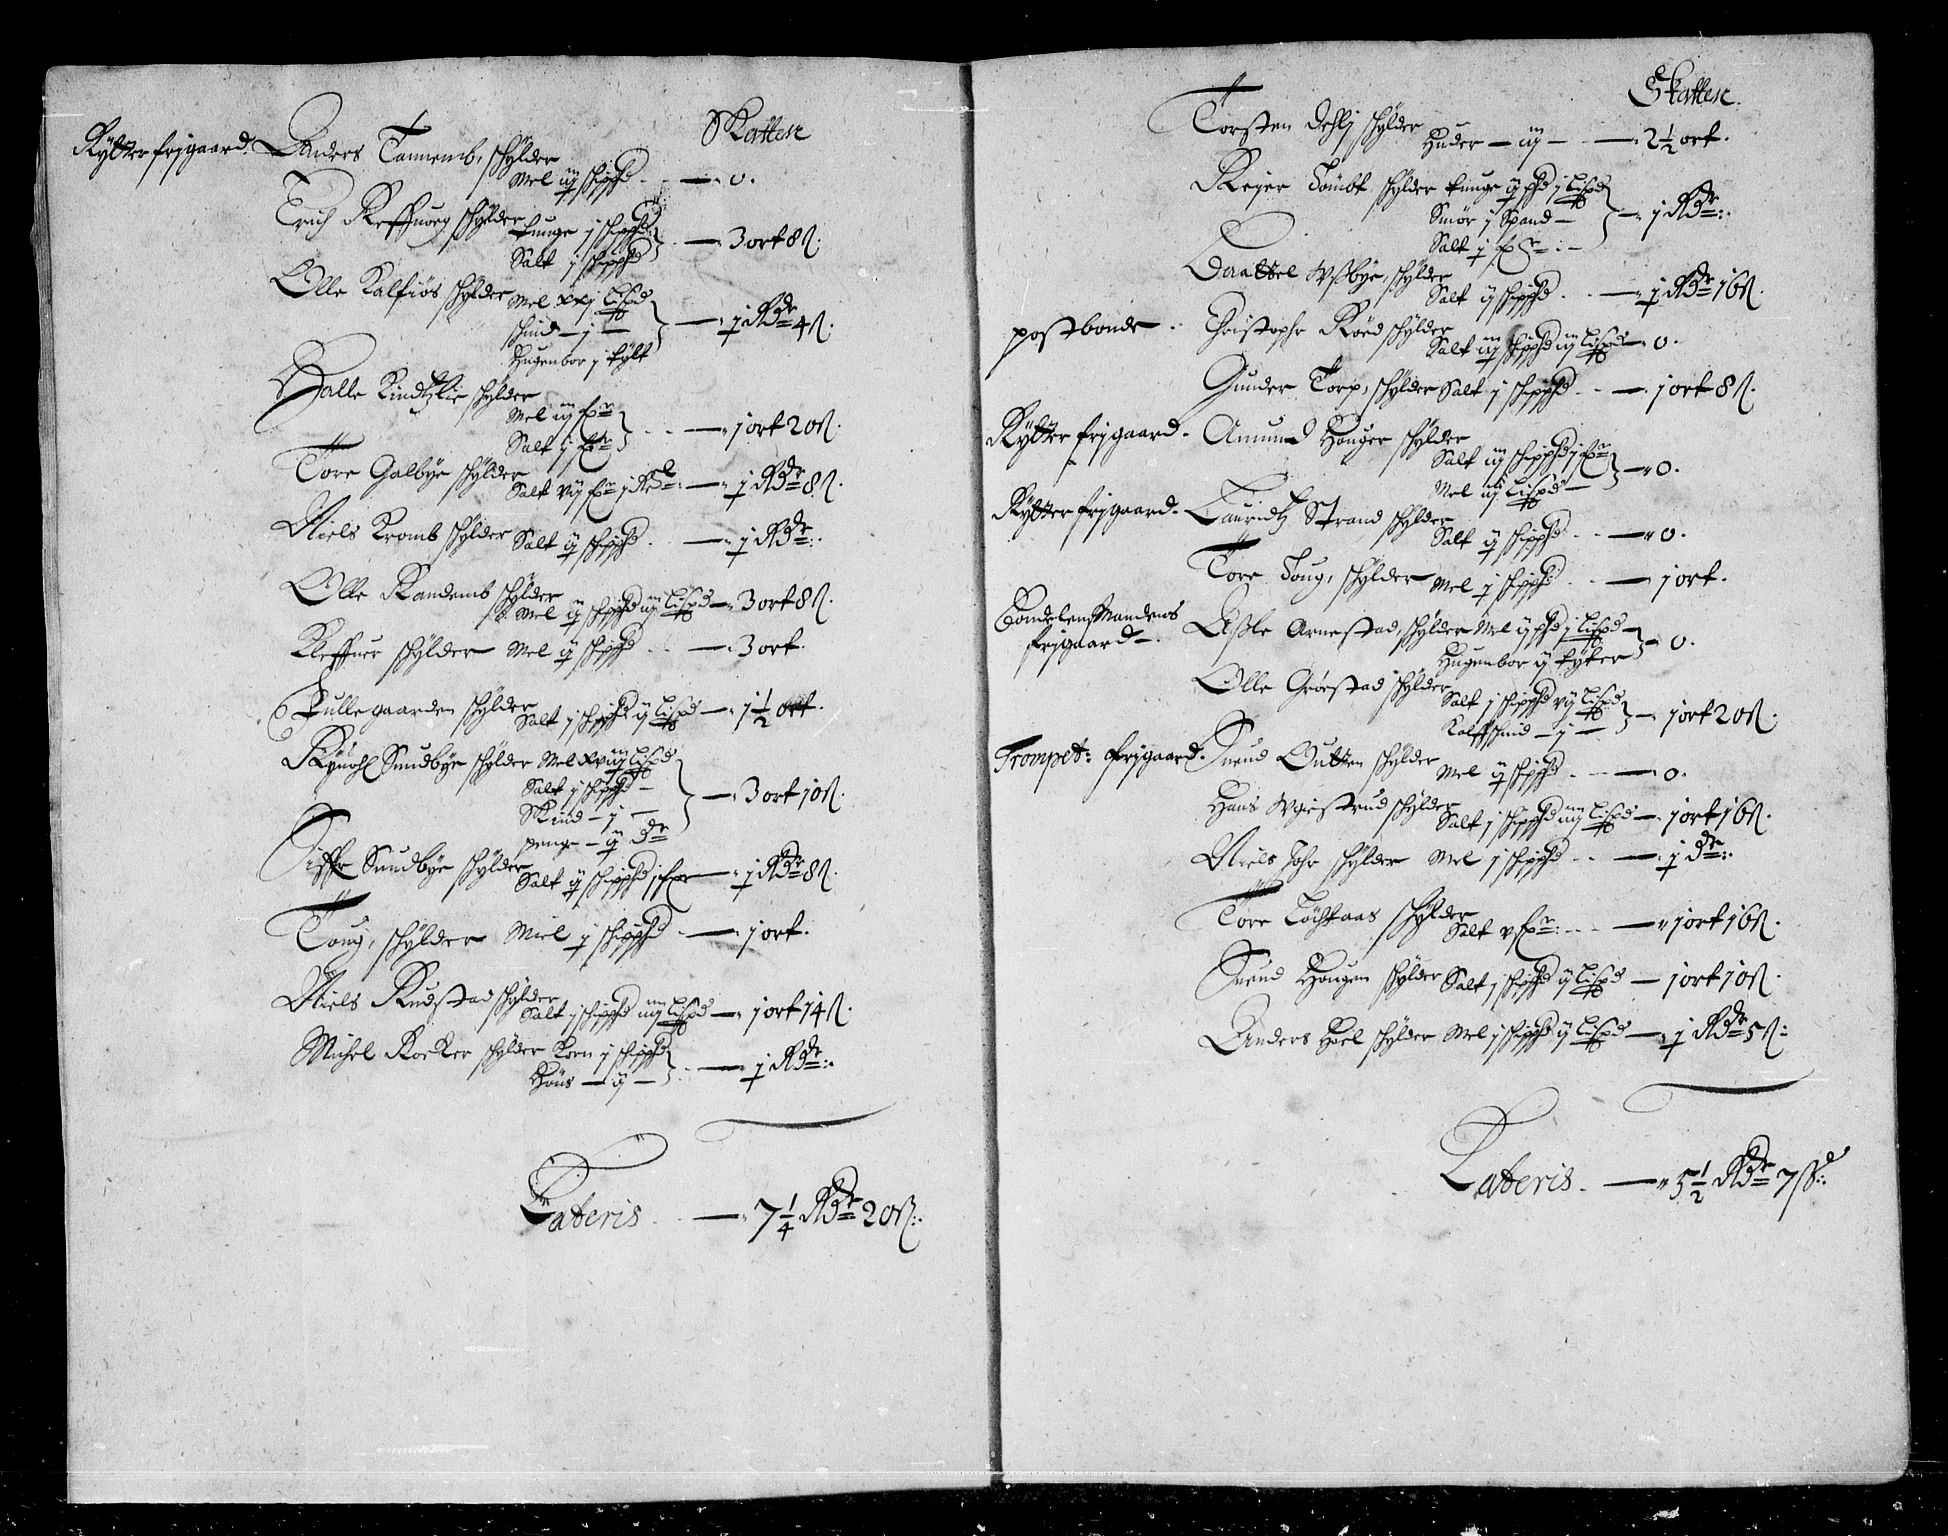 Skatter
Rytter frjgaard. Anders Tannemb, schylder
Mel iij schippd - - — 0.
Erich Refsuoeg schylder
tunge j schippd
Salt j schippd } — 3 ort 8 ß.
Olle Kalsiøs schylder Mel xxj Lispd
schind — j —
Hugenbor j tylt } — 1 Rdr 4 ß.
Halle Kindtzlie schylder
Mel iij spr
Salt j spr } - - — 1 ort 20 ß.
Tore Galbye schylder
Salt vij spr j — 1 Rdr 8 ß.
Niels Kromb schylder Salt ij schippd - — 1 Rdr.
Olle Randemb schylder
Mel ij schippd iij Lispd — 3 ort 8 ß.
Kleffuer schylder Mel ij schippd - - — 3 ort.
Pullegaarden schylder
Salt j schippd ij Lispd — 1½ ort.
Sundbye schylder Mel xviij Lispd
Salt j schippd —
Skind — j —
penge — ij dr } — 3 ort 10 ß.
Siffr Sundbye schylder
Salt ij schippd j spr — 1 Rdr 8 ß.
Toug, schylder Miel j schippd - — 1 ort.
Niels Rudstad schylder
Salt j schippd iiij Lispd — 1 ort 14 ß.
Michel Kocker schylder Korn j schippd
Høns — ij — } - — 1 Rdr.
Lateris - - — 7¼ Rdr 20 ß.
Skatter.
Torsten Dehlj schylder
Huder — iij — - — 2½ ort.
Rejer Tombt schylder tunge ij pd j Lispd
Smør j Spand —
Salt j spr — } — 1 Rdr.
Baattel Wssbye, schylder
Salt ij schippd - - — 1 Rdr 16 ß.
postbonde - Christopher Røed schylder
Salt iij schippd iij Lispd — 0.
Gunder Torp, schylder Salt j schippd - - — 1 ort 8 ß.
Rytter frjgaard - Amund Houger schylder
Salt iij schippd j spr
Mel iij Lispd — } — 0.
Rytter frjgaard - Lauridtz Strand schylder
Salt ij schippd - - — 0.
Tore Toug, schylder Mel j schippd - - — 1 ort.
BondeLensMandens
frjgaard - Assle Arnestad, schylder Mel ij pd j Lispd
Hugenbor ij tylter } — 0.
Olle Grøestad schylder
Salt j schippd vij Lispd
Kalffschind — j — } — 1 ort 20 ß.
Trompet: frjgaard - Suend Outten schylder
Mel ij schippd - - — 0.
Hans Wgestrud schylder
Salt j schippd iiij Lispd — 1 ort 16 ß.
Niels Johr schylder Mel j schippd - - — 1 dr.
Tore Lochtaas schylder
Salt v spr - - — 1 ort 16 ß.
Suend Hougen schylder Salt j schippd ij Lispd — 1 ort 10 ß.
Anders Hoel schylder Mel j schippd ij Lispd — 1 Rdr 5 ß.
Lateris - — 5½ Rdr 7 ß.